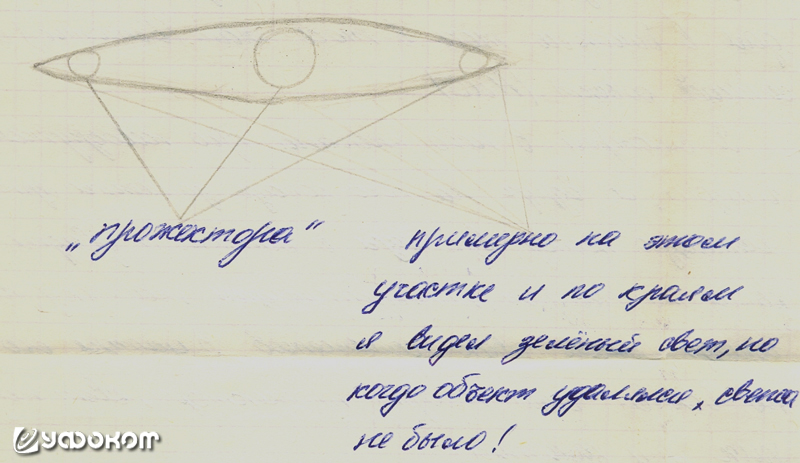 „прожектора“
примерно на этом
участке и по краям
я видел зелёный свет, но
когда объект удалялся, света
не было!
уфоком